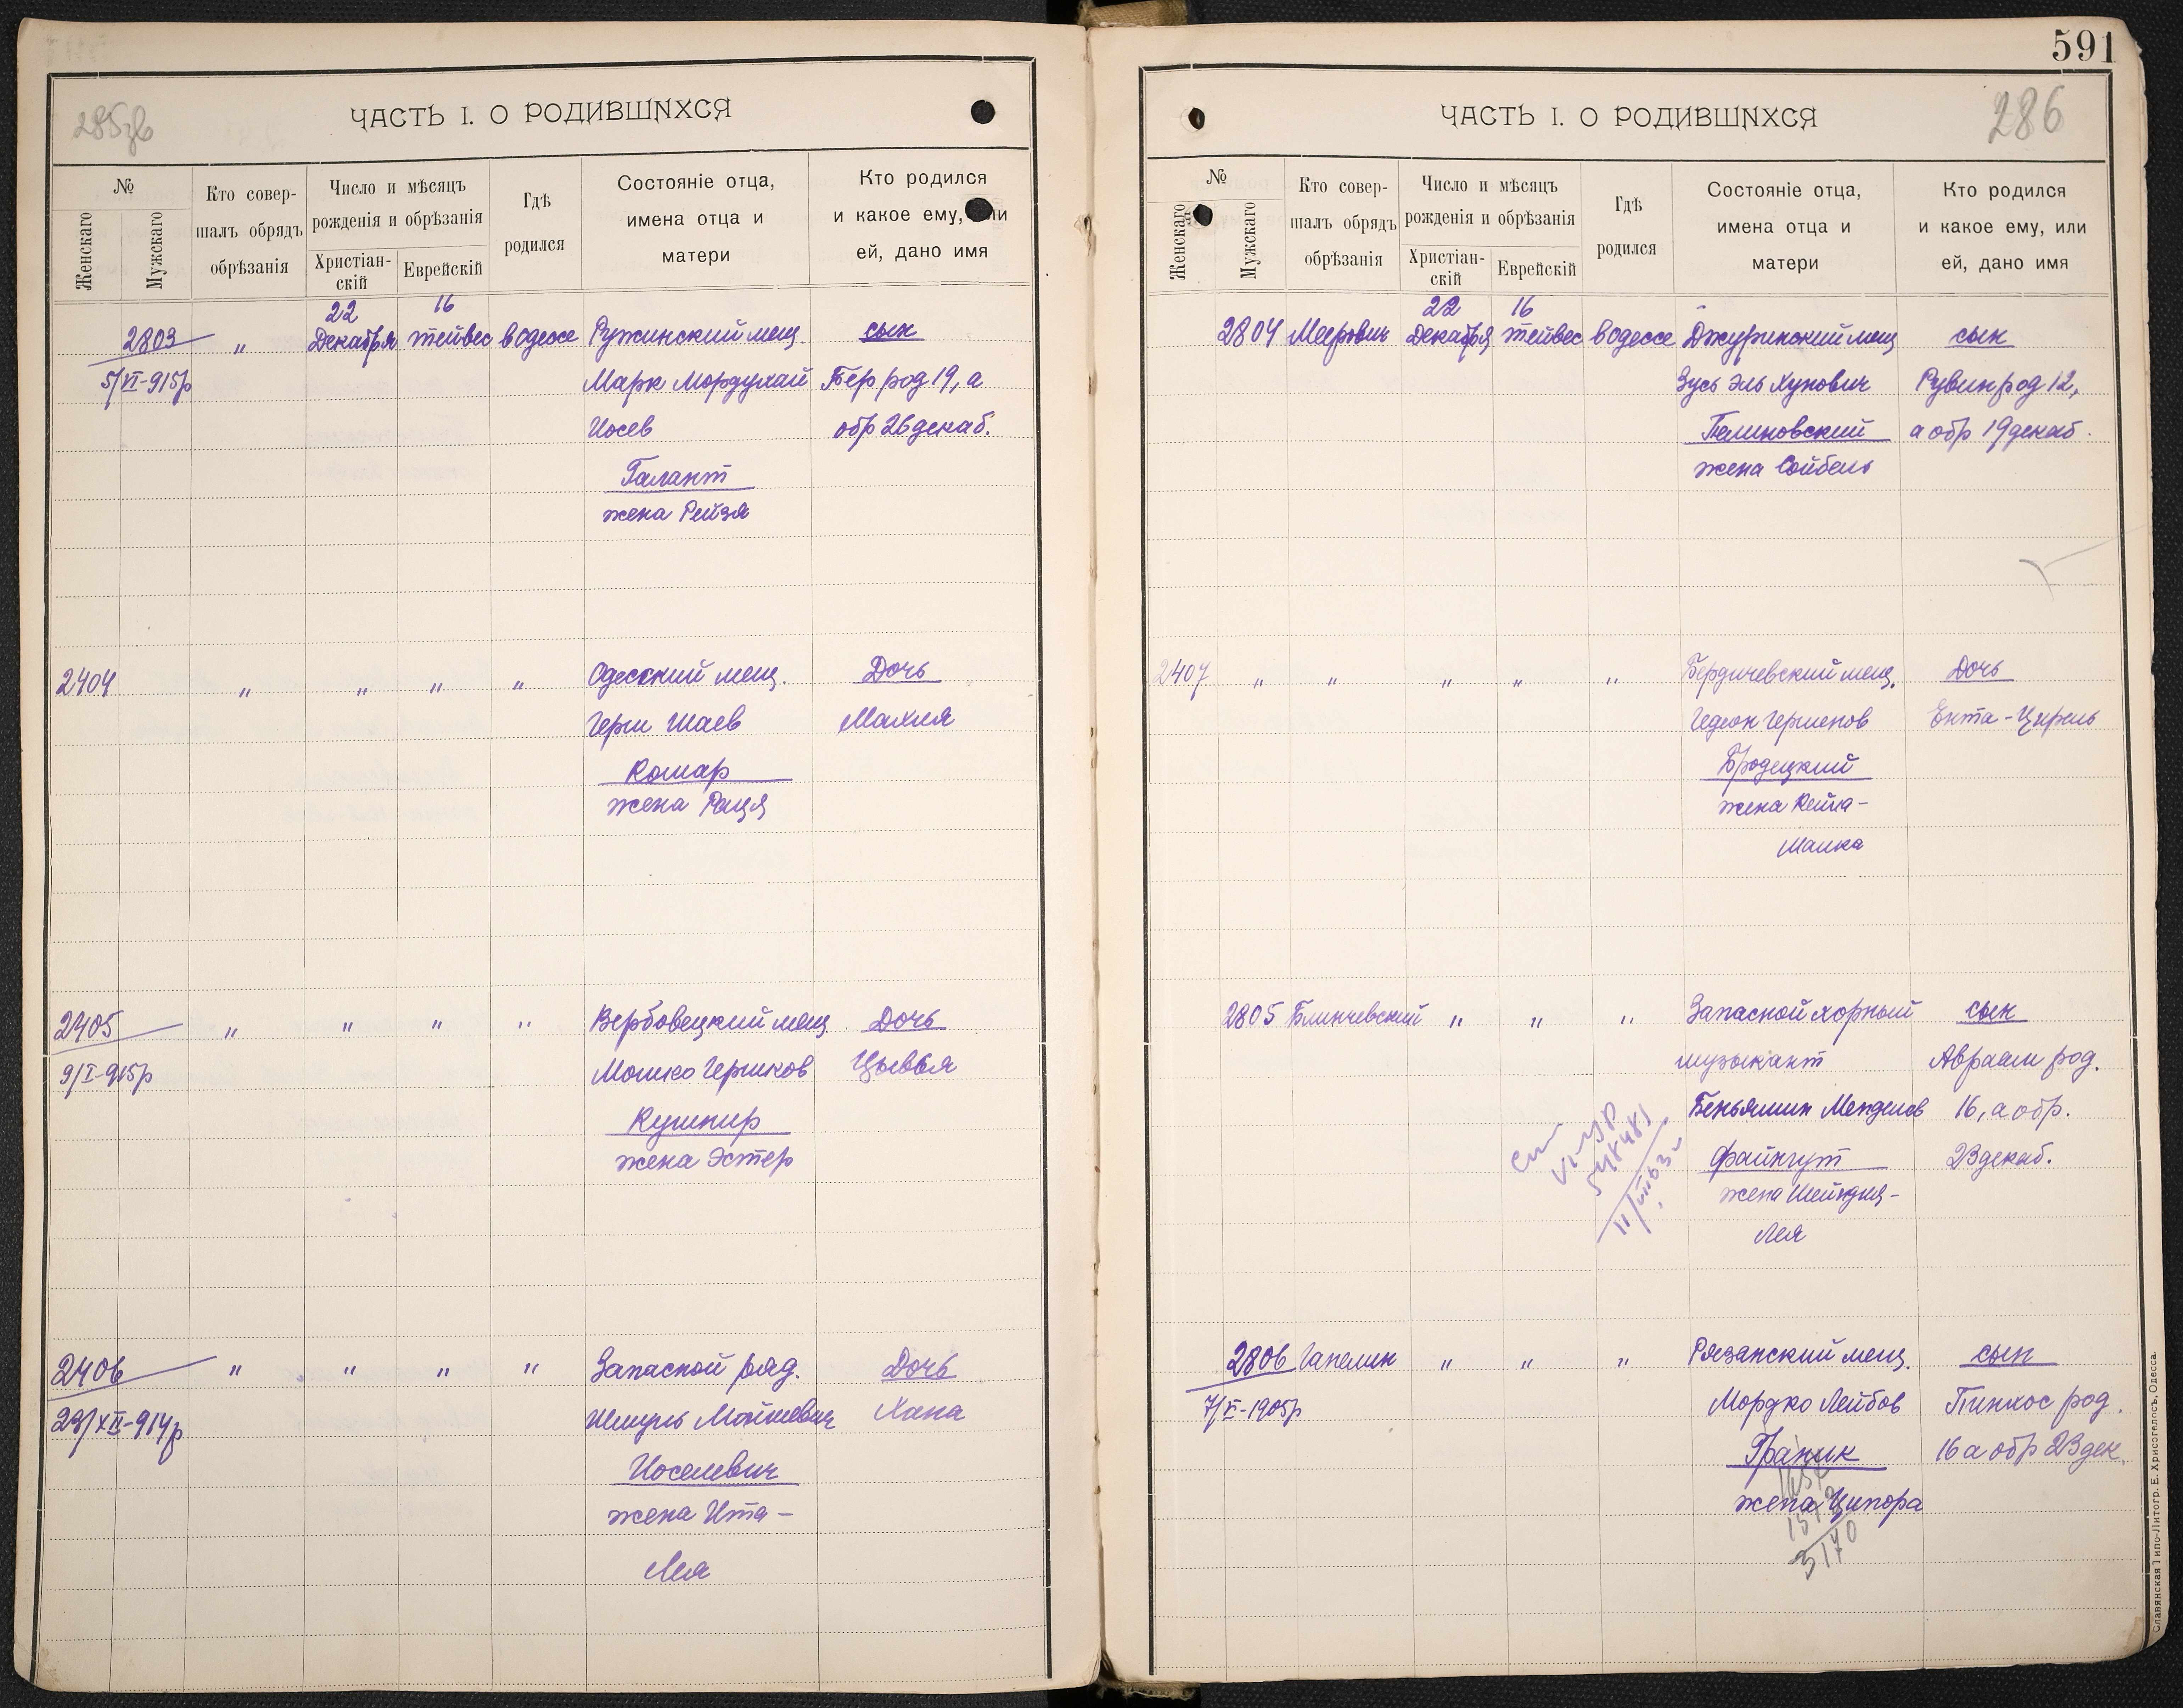 285зв
ЧАСТЬ I. О РОДИВШИХСЯ
№
Женскаго
Мужскаго
Кто совер-
шалъ обрядъ
обрѣзанія
Число и мѣсяцъ
рожденія и обрѣзанія
Христіан-
скій
Еврейскій
Гдѣ
родился
Состояніе отца,
имена отца и
матери
Кто родился
и какое ему, или
ей, дано имя
22 16
2803 " Декабря тейвес в одессе Ружинский мещ. сын
5/VI-915р Марк Мордухай Бер род 19, а
Иосев обр 26 декаб.
Галант
жена Рейзя
2404 " " " " Одесский мещ. Дочь
Герш Шаев Махля
Комар
жена Раця
2405 " " " " Вербовецкий мещ Дочь
9/I-915р Мошко Гершков Цывья
Кушнир
жена Эстер
2406 " " " " Запасной ряд. Дочь
29/XII-914р Шмуль Мойшевич Хана
Иоселевич
жена Ита-
Лея
591
286
ЧАСТЬ I. О РОДИВШИХСЯ
№
Женскаго
Мужскаго
Кто совер-
шалъ обрядъ
обрѣзанія
Число и мѣсяцъ
рожденія и обрѣзанія
Христіан-
скій
Еврейскій
Гдѣ
родился
Состояніе отца,
имена отца и
матери
Кто родился
и какое ему, или
ей, дано имя
22 16
2804 Меерович Декабря тейвес в одессе Джуринский мещ сын
Зусь Эль Хунович Рувин род 12,
Галиновский а обр 19 декаб.
жена Сойбель
2407 " " " " " Бердичевский мещ. Дочь
Гедеон Гершенов Ента-Цирель
Бродецкий
жена Кейла-
Малка
2805 Блинчевский " " " Запасной хорный сын
музыкант Авраам род.
Беньямин Менделев 16, а обр.
Файнгут 23 декаб.
жена Шейндля-
Лея
2806 Гапелин " " " Рязанский мещ. сын
7/V-1905р Мордко Лейбов Пинхос род.
Граник 16 а обр 23 дек.
жена Ципора
3170
Славянская Типо-Литогр. Е. Хрисогелосъ, Одесса.